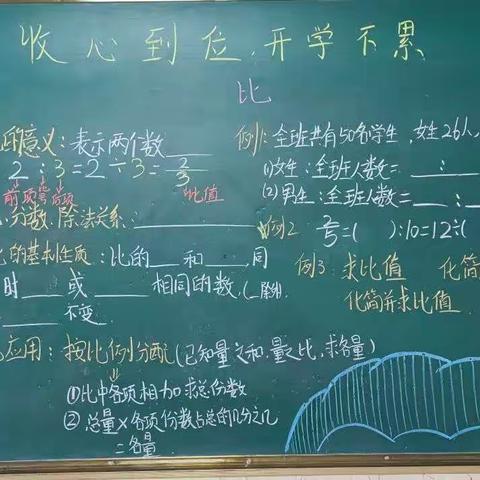 收心到位,开学不累
比
意义:表示两个数____
2:3=2÷3=2/3
前项 比号 后项 比值
分数.除法关系:____
的基本性质:比的____和____,同
时____或____相同的数.(__除外).
____不变.
应用:按比例分配(已知量之和.量之比,求各量)
①比中各项相加求总份数
②总量×各项份数占总的几分之几
=各量.
例1:全班共有50名学生,女生26人,
(1)女生:全班人数=____:
(2)男生:全班人数=____:
例2 2/5=( ):10=12÷(
例3:求比值 化简
化简并求比值